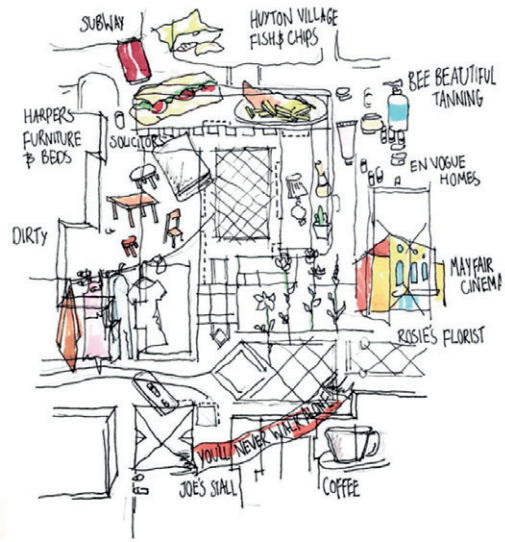 SUBWAY
HUYTON VILLAGE
FISH & CHIPS
BEE BEAUTIFUL
TANNING
HARPERS
FURNITURE
& BEDS
SOLICITORS
EN VOGUE
HOMES
DIRTY
MAYFAIR
CINEMA
ROSIE'S FLORIST
YOU'LL NEVER WALK ALONE
JOE'S STALL
COFFEE